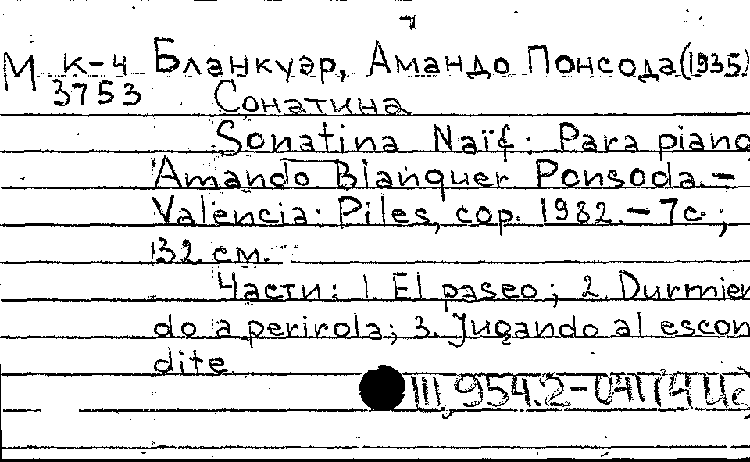 М К-4 Бланкуэр, Амандо Понсода (1935)
3753 Сонатина
Sonatina Naïf: Para piano
Amando Blanquer Ponsoda. –
Valencia: Piles, cop. 1982. – 7 с.;
32 см.
Части: 1. El paseo; 2. Durmien
do a perirola; 3. Jugando al escon
dite
III 954.2-041 (4 Ис)